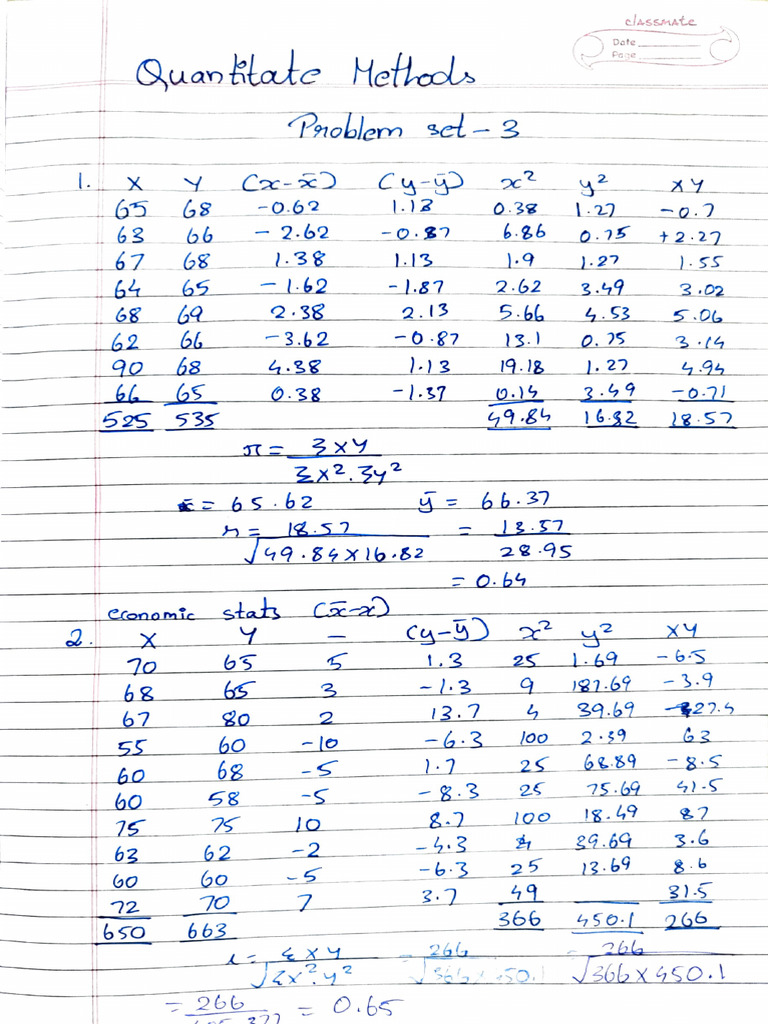 classmate
Date
Page
Quantitate Methods
Problem set - 3
1. X Y (x-x̄) (y-ȳ) x² y² XY
65 68 -0.62 1.13 0.38 1.27 -0.7
63 66 -2.62 -0.87 6.86 0.75 +2.27
67 68 1.38 1.13 1.9 1.27 1.55
64 65 -1.62 -1.87 2.62 3.49 3.02
68 69 2.38 2.13 5.66 4.53 5.06
62 66 -3.62 -0.87 13.1 0.75 3.14
90 68 4.38 1.13 19.18 1.27 4.94
66 65 0.38 -1.37 0.14 3.49 -0.71
525 535 49.84 16.82 18.57
r = ΣXY
ΣX².Σy²
x̄ = 65.62 ȳ = 66.37
r = 18.57 = 18.57
√49.84×16.82 28.95
= 0.64
economic stats (x̄-x)
2. X Y - (y-ȳ) x² y² XY
70 65 5 1.3 25 1.69 -6.5
68 65 3 -1.3 9 187.69 -3.9
67 80 2 13.7 4 39.69 27.4
55 60 -10 -6.3 100 2.39 63
60 68 -5 1.7 25 68.89 -8.5
60 58 -5 -8.3 25 75.69 41.5
75 75 10 8.7 100 18.49 87
63 62 -2 -4.3 4 39.69 3.6
60 60 -5 -6.3 25 13.69 8.6
72 70 7 3.7 49 31.5
650 663 366 450.1 266
r = ΣXY = 266 = 266
√Σx².y² √366×450.1 √366×450.1
= 266 = 0.65